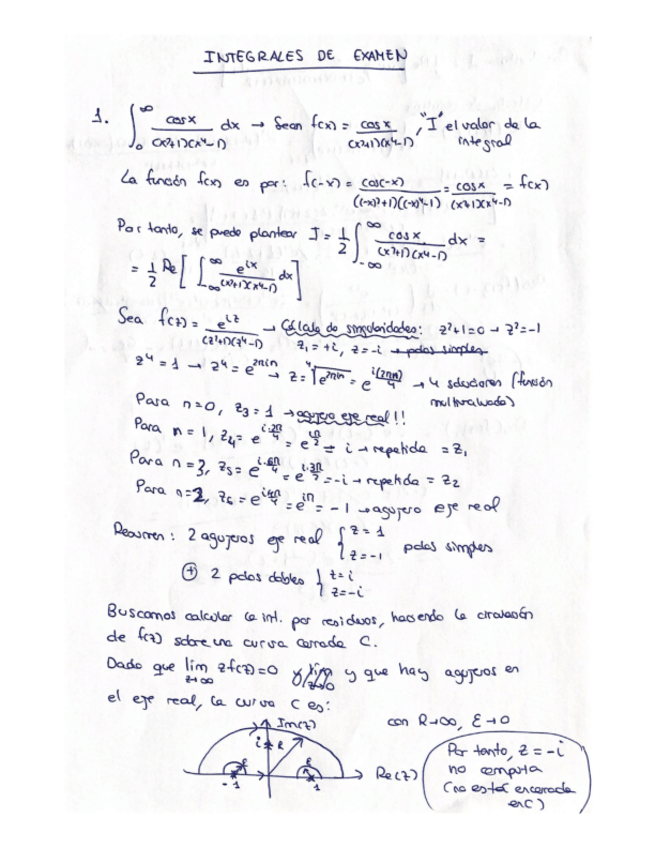 INTEGRALES DE EXAMEN
1. ∫₀^∞ cosx/((x²+1)(x⁴-1)) dx → Sean f(x) = cosx/((x²+1)(x⁴-1)), "I" el valor de la integral
La función f(x) es par: f(-x) = cos(-x)/(((-x)²+1)((-x)⁴-1)) = cosx/((x²+1)(x⁴-1)) = f(x)
Por tanto, se puede plantear I = 1/2 ∫_{-∞}^{∞} cosx/((x²+1)(x⁴-1)) dx =
= 1/2 Re[∫_{-∞}^{∞} e^{ix}/((x²+1)(x⁴-1)) dx]
Sea f(z) = e^{iz}/((z²+1)(z⁴-1)) → Cálculo de singularidades: z²+1=0 → z²=-1
z₁=+i, z=-i → polos simples
z⁴=1 → z⁴=e^{2πin} → z=⁴√e^{2πin} = e^{i(2πn)/4} → 4 soluciones (función multivaluada)
Para n=0, z₃=1 → agujero eje real!!
Para n=1, z₄= e^{i·2π/4} = e^{iπ/2} = i → repetida = z₁
Para n=3, z₅= e^{i·6π/4} = e^{i·3π/2} = -i → repetida = z₂
Para n=2, z₆= e^{i4π/4} = e^{iπ} = -1 → agujero eje real
Resumen: 2 agujeros eje real { z=1 z=-1 polos simples
⊕ 2 polos dobles { z=i z=-i
Buscamos calcular la int. por residuos, haciendo la circulación
de f(z) sobre una curva cerrada C.
Dado que lim z→∞ zf(z)=0 y que hay agujeros en
el eje real, la curva C es: con R→∞, ε→0
Im(z)
i R
ε ε
-1 1 Re(z)
Por tanto, z=-i
no computa
(no está encerrada
en C)